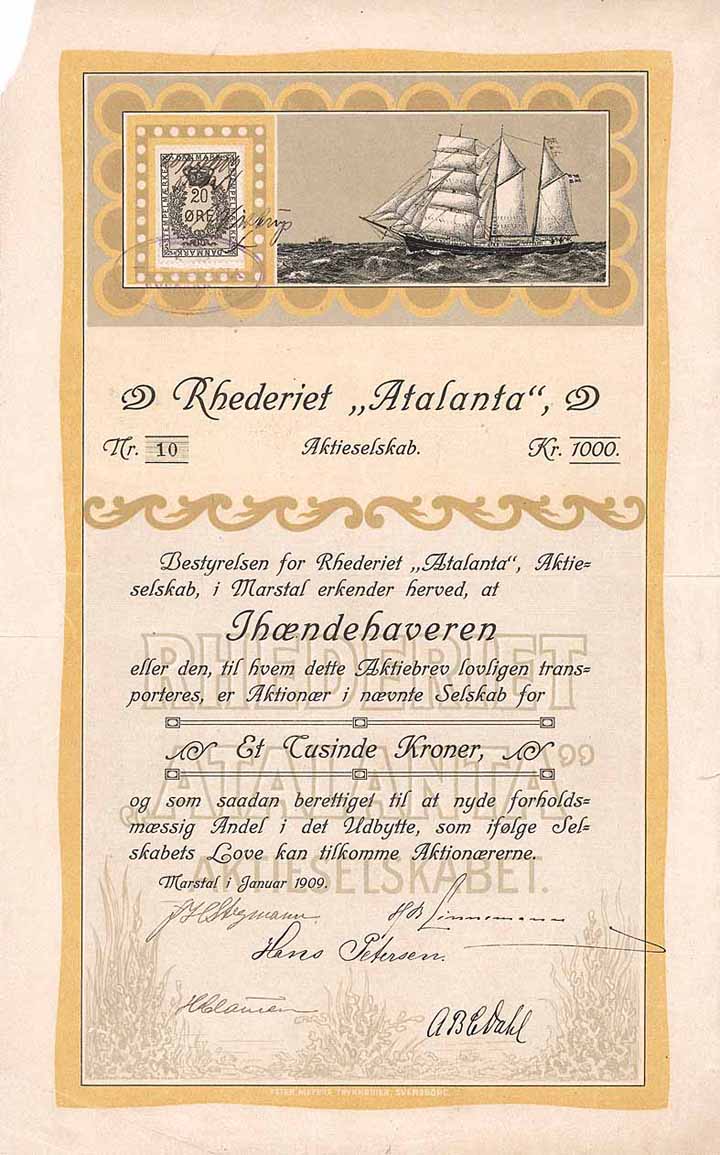 STEMPELMÆRKE DANMARK STEMPELMÆRKE DANMARK
20
ØRE
Rhederiet „Atalanta“,
Nr. 10 Aktieselskab. Kr. 1000.
Bestyrelsen for Rhederiet „Atalanta“, Aktie=
selskab, i Marstal erkender herved, at
Ihændehaveren
eller den, til hvem dette Aktiebrev lovligen trans=
porteres, er Aktionær i nævnte Selskab for
Et Tusinde Kroner,
og som saadan berettiget til at nyde forholds=
mæssig Andel i det Udbytte, som ifølge Sel=
skabets Love kan tilkomme Aktionærerne.
RHEDERIET
„ATALANTA“
AKTIESELSKABET.
Marstal i Januar 1909.
Stegmann. HB Linnemann
Hans Petersen.
HClausen ABCDahl
TRYKKERIER, SVENDBORG.